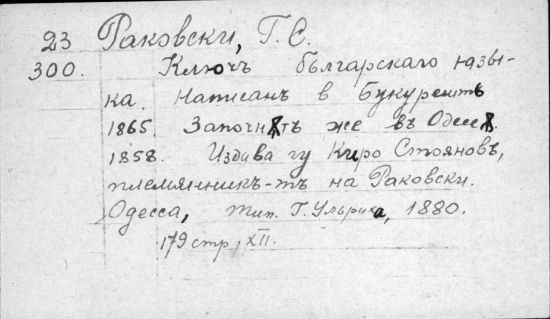 23 Раковски, Г. С.
300. Ключъ бългaрскаго язы-
ка. Написанъ в Букурешть
1865. Започнѫтъ же въ Одесѫ.
1858. Издава гу Киро Стояновъ,
племянникъ-тъ на Раковски.
Одесса, тип. Г. Ульриха, 1880.
179 стр, XII.